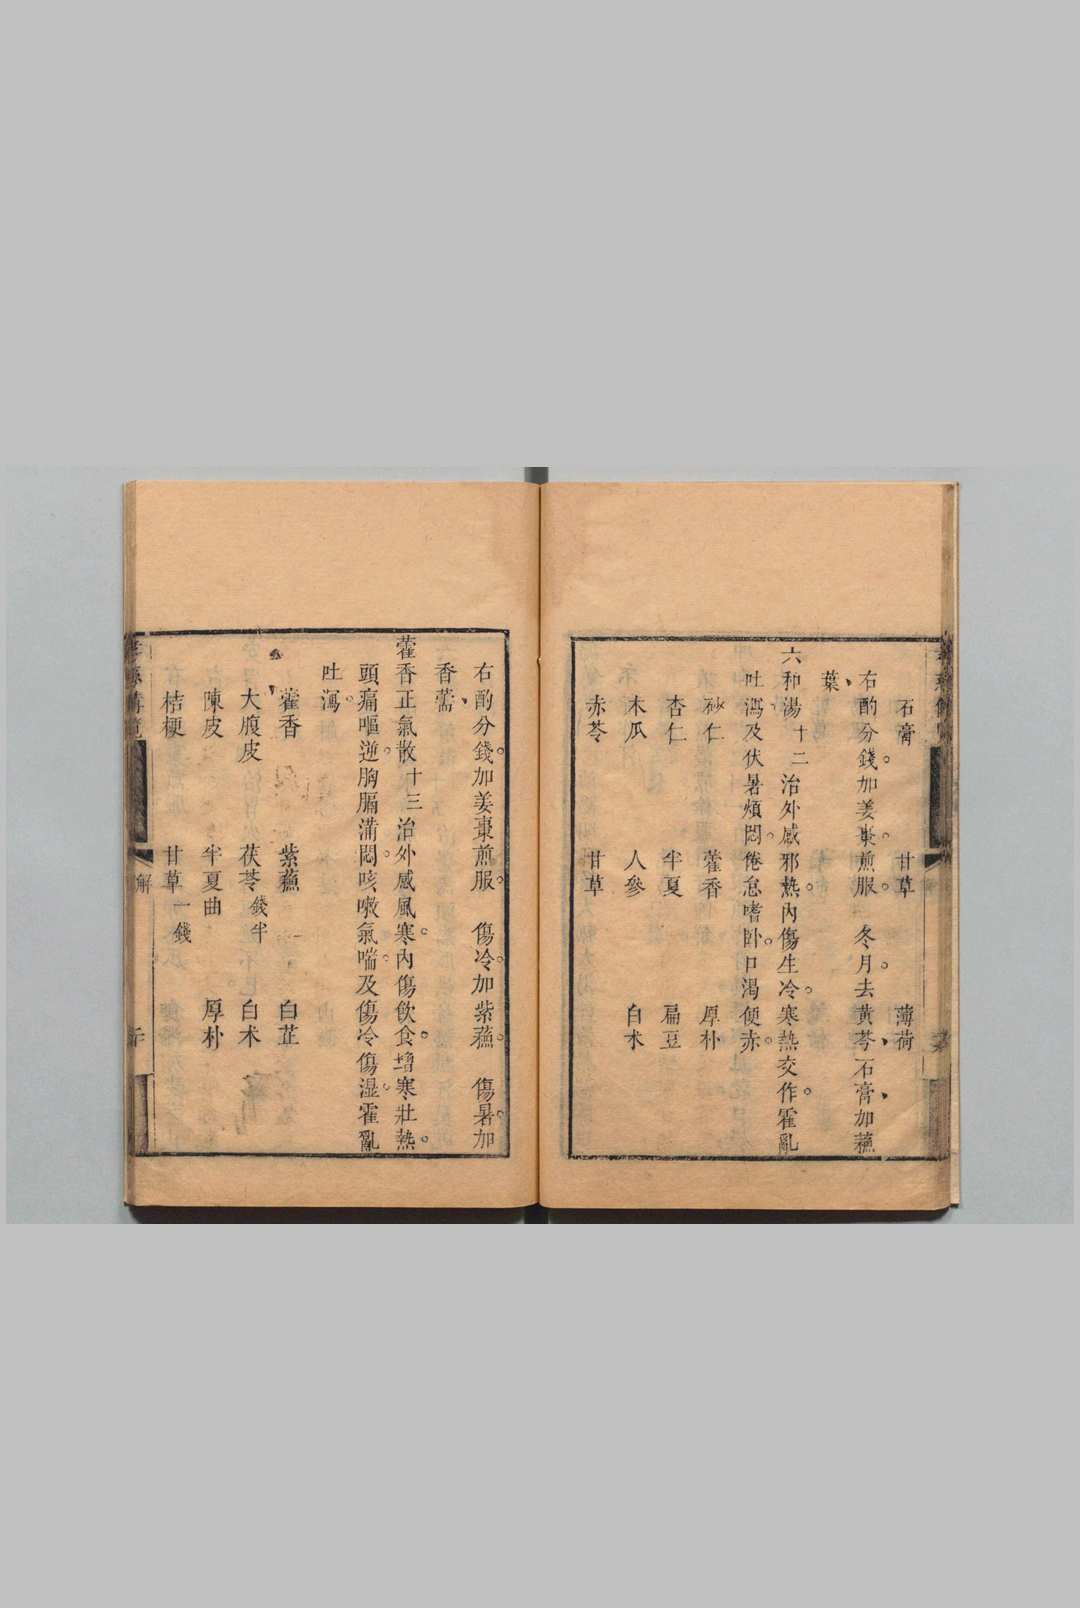 石膏　甘草　薄荷
右酌分錢加姜棗煎服　冬月去黃芩石膏加蘇
葉
六和湯十二治外感邪熱內傷生冷寒熱交作霍亂
吐瀉及伏暑煩悶倦怠嗜卧口渴便赤
砂仁　藿香　厚朴
杏仁　半夏　扁豆
木瓜　人參　白朮
赤苓　甘草
右酌分錢加姜棗煎服　傷冷加紫蘇　傷暑加
香薷
藿香正氣散十三治外感風寒內傷飲食增寒壯熱
頭痛嘔逆胸膈滿悶咳嗽氣喘及傷冷傷湿霍亂
吐瀉
藿香　紫蘇　白芷
大腹皮　茯苓錢半　白朮
陳皮　半夏曲　厚朴
桔梗　甘草一錢
解